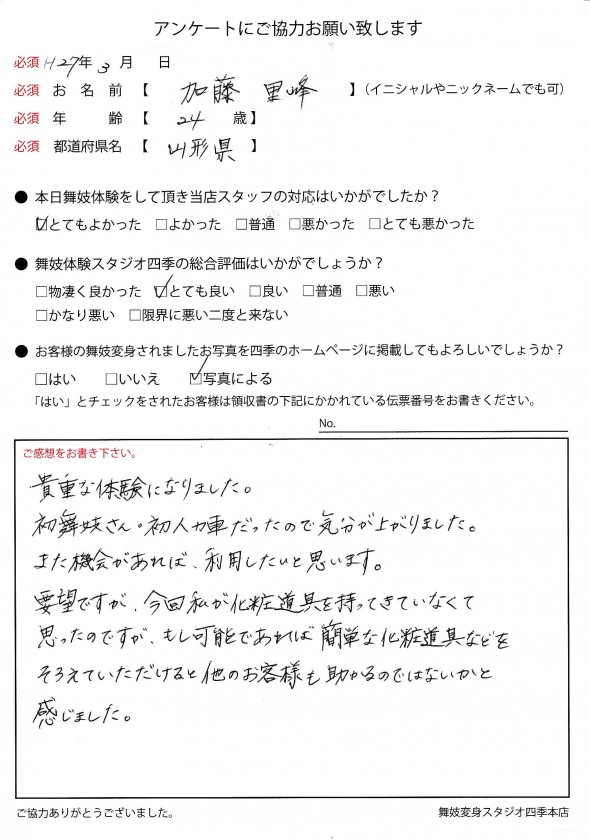 アンケートにご協力お願い致します
必須 H27年 3月 日
必須 お名前【 加藤 里峰 】（イニシャルやニックネームでも可）
必須 年 齢【 24 歳】
必須 都道府県名【 山形県 】
● 本日舞妓体験をして頂き当店スタッフの対応はいかがでしたか？
☑とてもよかった □よかった □普通 □悪かった □とても悪かった
● 舞妓体験スタジオ四季の総合評価はいかがでしょうか？
□物凄く良かった ☑とても良い □良い □普通 □悪い
□かなり悪い □限界に悪い二度と来ない
● お客様の舞妓変身されましたお写真を四季のホームページに掲載してもよろしいでしょうか？
□はい □いいえ ☑写真による
「はい」とチェックをされたお客様は領収書の下記にかかれている伝票番号をお書きください。
No.
ご感想をお書き下さい。
貴重な体験になりました。
初舞妓さん・初人力車だったので気分が上がりました。
また機会があれば、利用したいと思います。
要望ですが、今回私が化粧道具を持ってきていなくて
思ったのですが、もし可能であれば簡単な化粧道具などを
そろえていただけると他のお客様も助かるのではないかと
感じました。
ご協力ありがとうございました。
舞妓変身スタジオ四季本店